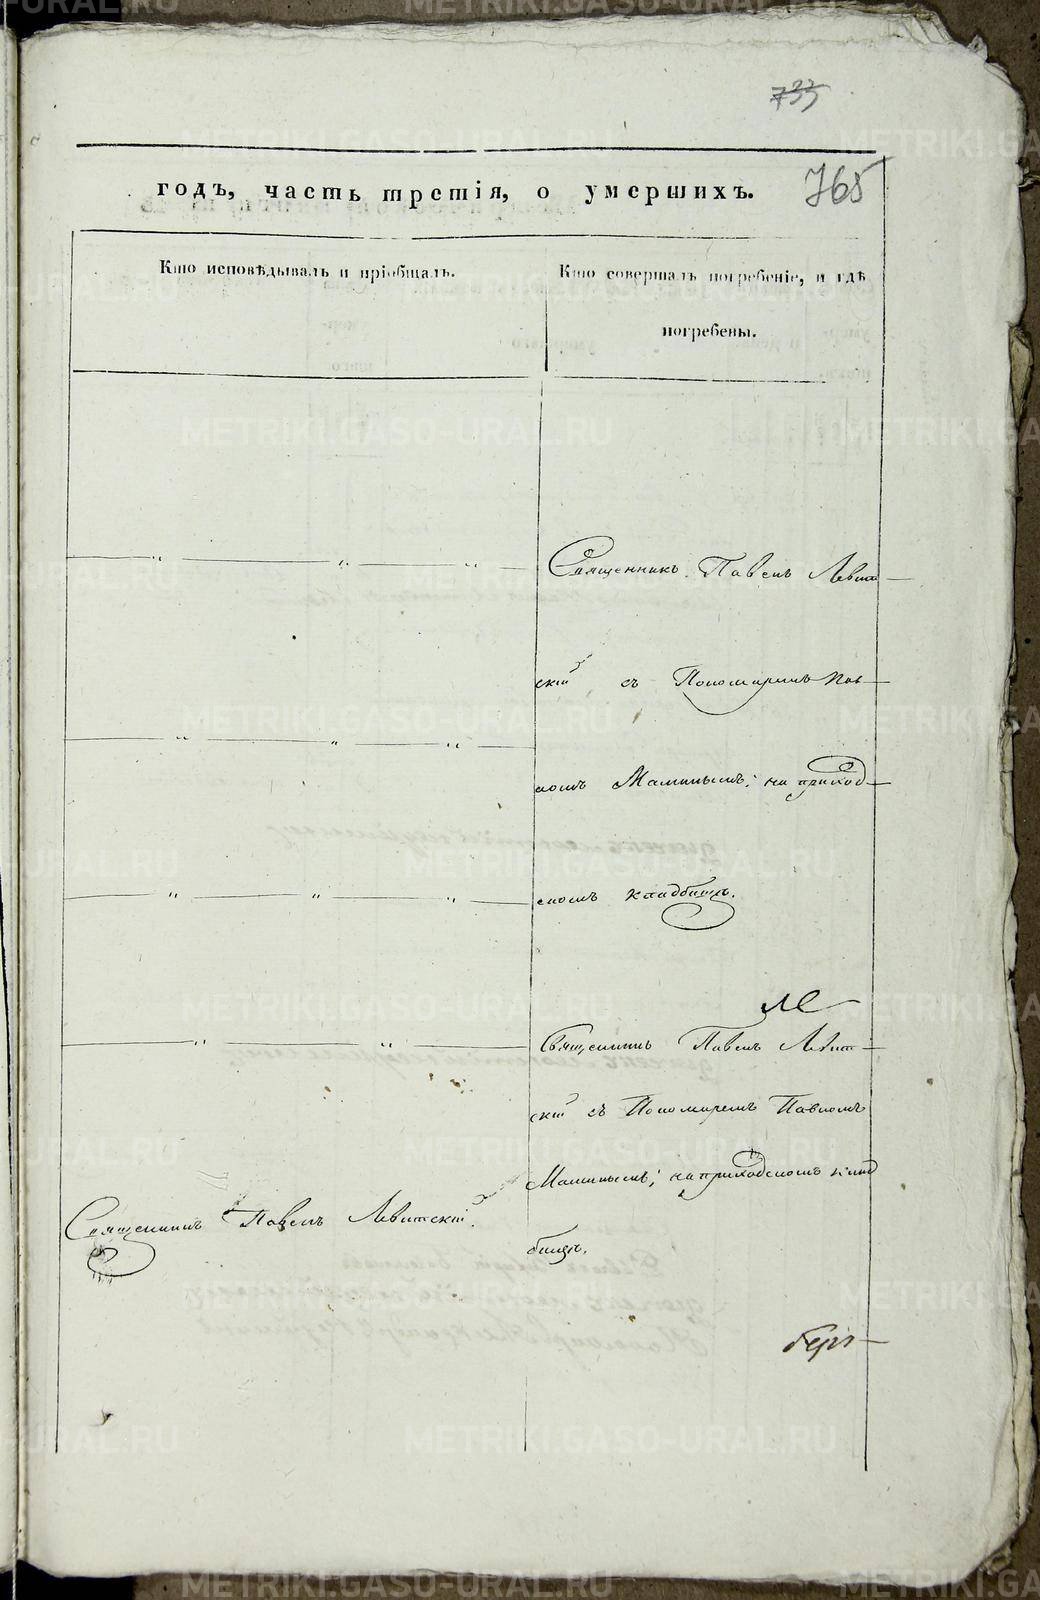 733
765
годъ, часть третія, о умершихъ.
Кто исповѣдывалъ и пріобщалъ.
Кто совершалъ погребеніе, и гдѣ
погребены.
Священникъ Павелъ Левит
скій съ Пономаремъ Пав
ломъ Маминымъ; на приход
скомъ кладбищѣ.
Священникъ Павелъ Левит
скій съ Пономаремъ Павломъ
Маминымъ; на приходскомъ клад
бищѣ.
Священникъ Павелъ Левитскій
METRIKI.GASO-URAL.RU